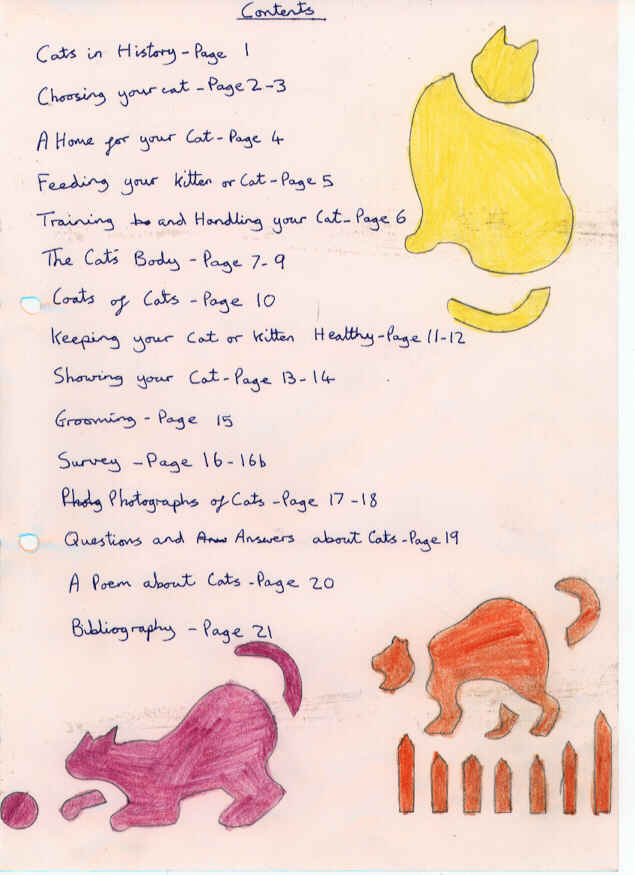 Contents
Cats in History - Page 1
Choosing your cat - Page 2-3
A Home for your Cat - Page 4
Feeding your Kitten or Cat - Page 5
Training and Handling your Cat - Page 6
The Cat's Body - Page 7-9
Coats of Cats - Page 10
Keeping your Cat or Kitten Healthy - Page 11-12
Showing your Cat - Page 13-14
Grooming - Page 15
Survey - Page 16-16b
Photographs of Cats - Page 17-18
Questions and Answers about Cats - Page 19
A Poem about Cats - Page 20
Bibliography - Page 21